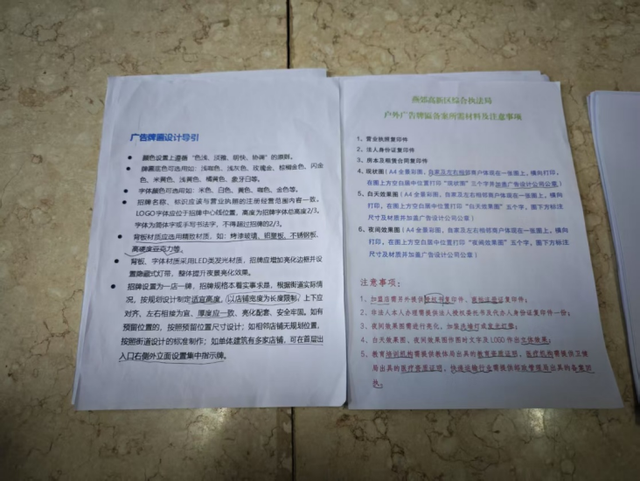 广告牌匾设计导引
颜色设置上遵循“色浅、淡雅、明快、协调”的原则。
牌匾底色可选用如:浅咖色、浅灰色、玫瑰金、棕榈金色、闪金
色、米黄色、浅黄色、橘黄色、象牙白等。
字体颜色可选用如:米色、白色、黄色、咖色、金色等。
招牌名称、标识应该与营业执照的注册经营范围内容一致。
LOGO字体应位于招牌中心线位置,高度为招牌字体总高度2/3。
字体为固体字或手写书法字,不得超过招牌的2/3。
背板材质应选用精致材质,如:烤漆玻璃、铝塑板、不锈钢板、
高硬度亚克力等。
背板、字体材质采用LED类发光材质,招牌应增加亮化边嵌并设
置隐藏式灯带,整体提升夜景亮化效果。
招牌设置为一店一牌,招牌规格本着实事求是,根据街道实际情
况,按规划设计制定适宜高度,以店铺宽度为长度限制,上下应
对齐,左右相接为宜,厚度应一致、亮化配套、安全牢固。如有
预留位置的,按照预留位置尺寸设计;如相邻店铺无规划位置,
按照街道设计的标准制作;如单体建筑有多家店铺,可在首层出
入口右侧外立面设置集中指示牌。
燕郊高新区综合执法局
户外广告牌匾备案所需材料及注意事项
1、营业执照复印件
2、法人身份证复印件
3、房本及租赁合同复印件
4、现状图(A4全景彩图,自家及左右相邻商户体现在一张图上,横向打
印,在图上方空白居中位置打印“现状图”三个字并加盖广告设计公司公章)
5、白天效果图(A4全景彩图,自家及左右相邻商户体现在一张图上,横向
打印,在图上方空白居中位置打印“白天效果图”五个字,图下方标注
尺寸及材质并加盖广告设计公司公章)
6、夜间效果图(A4全景彩图,自家及左右相邻商户体现在一张图上,横向
打印,在图上方空白居中位置打印“夜间效果图”五个字,图下方标注
尺寸及材质并加盖广告设计公司公章)
注意事项:
1、加盟店需另外提供授权书复印件、商标注册证复印件;
2、非法人本人办理需提供法人授权委托书及代办人身份证复印件一份;
3、夜间效果图需进行亮化,如加洗墙灯或发光灯箱;
4、白天效果图、夜间效果图作图时文字及LOGO作出立体效果;
5、教育培训机构需提供教体局出具的教育资质证明,医疗机构需提供卫健
局出具的医疗资质证明,快递运输行业需提供邮政管理局出具的备案回
执。